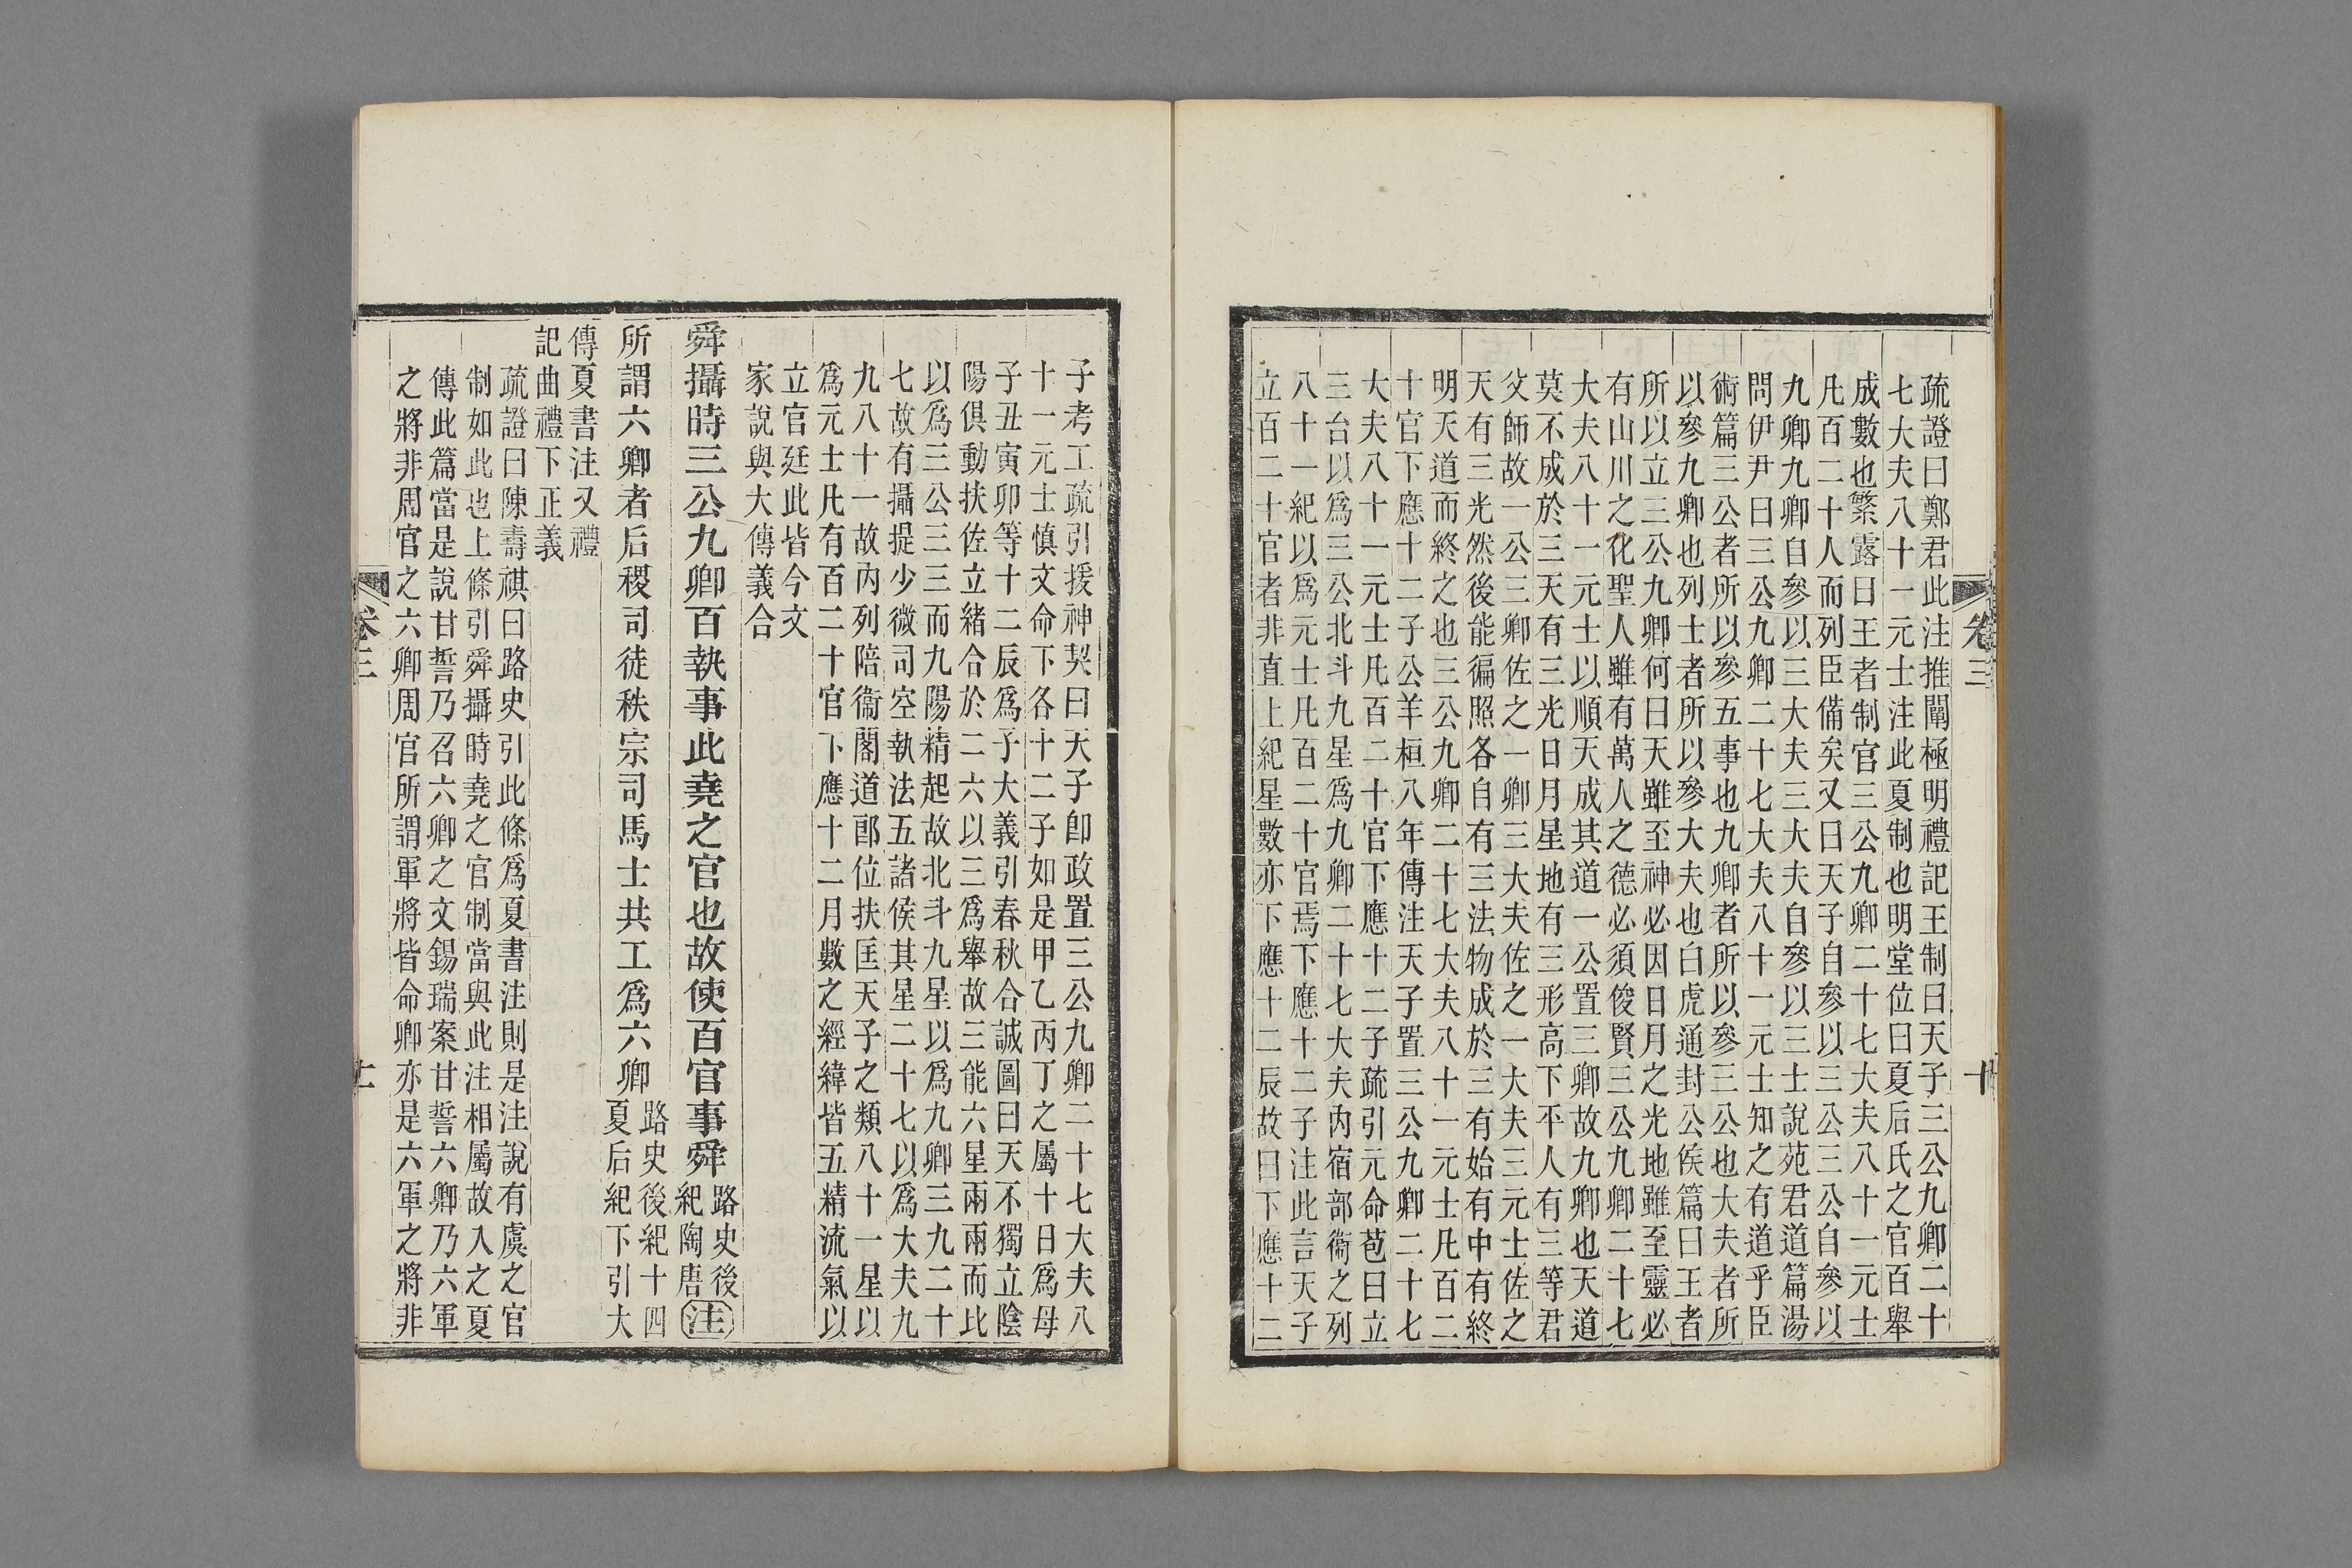 疏證曰鄭君此注推闡極明禮記王制曰天子三公九卿二十
七大夫八十一元士注此夏制也明堂位曰夏后氏之官百舉
成數也繁露曰王者制官三公九卿二十七大夫八十一元士
凡百二十人而列臣備矣又曰天子自參以三公三公自參以
九卿九卿自參以三大夫三大夫自參以三士說苑君道篇湯
問伊尹曰三公九卿二十七大夫八十一元士知之有道乎臣
術篇三公者所以參五事也九卿者所以參三公也大夫者所
以參九卿也列士者所以參大夫也白虎通封公侯篇曰王者
所以立三公九卿何曰天雖至神必因日月之光地雖至靈必
有山川之化聖人雖有萬人之德必須俊賢三公九卿二十七
大夫八十一元士以順天成其道一公置三卿故九卿也天道
莫不成於三天有三光日月星地有三形高下平人有三等君
父師故一公三卿佐之一卿三大夫佐之一大夫三元士佐之
天有三光然後能徧照各自有三法物成於三有始有中有終
明天道而終之也三公九卿二十七大夫八十一元士凡百二
十官下應十二子公羊桓八年傳注天子置三公九卿二十七
大夫八十一元士凡百二十官下應十二子疏引元命苞曰立
三台以爲三公北斗九星爲九卿二十七大夫內宿部衞之列
八十一紀以爲元士凡百二十官焉下應十二子注此言天子
立百二十官者非直上紀星數亦下應十二辰故曰下應十二
卷三
十
子考工疏引援神契曰天子卽政置三公九卿二十七大夫八
十一元士愼文命下各十二子如是甲乙丙丁之屬十日爲母
子丑寅卯等十二辰爲子大義引春秋合誠圖曰天不獨立陰
陽俱動扶佐立緒合於二六以三爲舉故三能六星兩兩而比
以爲三公三三而九陽精起故北斗九星以爲九卿三九二十
七故有攝提少微司空執法五諸侯其星二十七以爲大夫九
九八十一故內列陪衞閣道郎位扶匡天子之類八十一星以
爲元士凡有百二十官下應十二月數之經緯皆五精流氣以
立官廷此皆今文
家說與大傳義合
舜攝時三公九卿百執事此堯之官也故使百官事舜路史後
紀陶唐注
所謂六卿者后稷司徒秩宗司馬士共工爲六卿路史後紀十四
夏后紀下引大
傳夏書注又禮
記曲禮下正義
疏證曰陳壽祺曰路史引此條爲夏書注則是注說有虞之官
制如此也上條引舜攝時堯之官制當與此注相屬故入之夏
傳此篇當是說甘誓乃召六卿之文錫瑞案甘誓六卿乃六軍
之將非周官之六卿周官所謂軍將皆命卿亦是六軍之將非
卷三